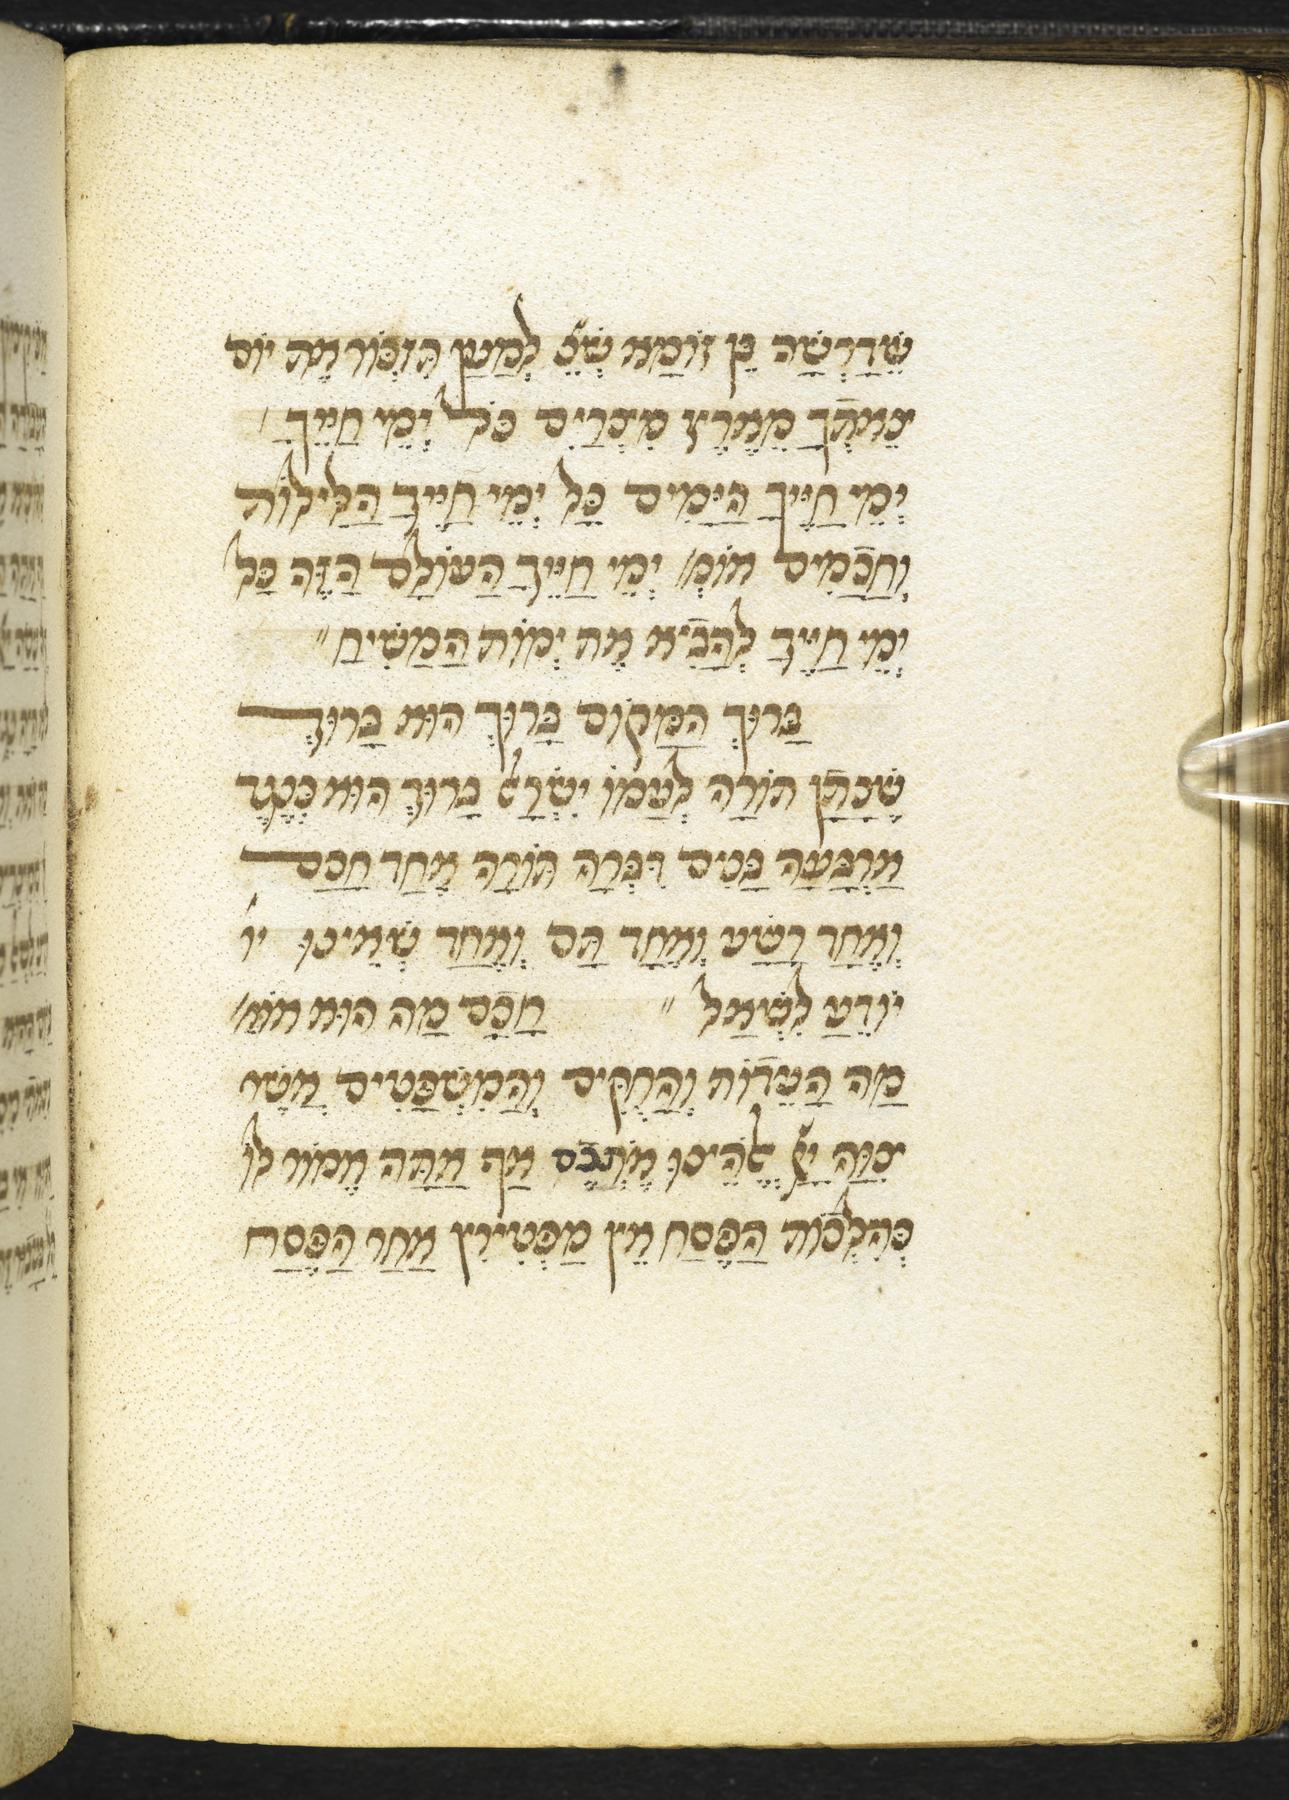 שֶׁדְּרָשָׁהּ בֶּן זוֹמָא שֶׁנֶ׳ לְמַעַן תִּזְכּוֹר אֶת יוֹם
צֵאתְךָ מֵאֶרֶץ מִצְרַיִם כֹּל יְמֵי חַיֶּיךָ ׳
יְמֵי חַיֶּיךָ הַיָּמִים כָּל יְמֵי חַיֶּיךָ הַלֵּילוֹת
וַחֲכָמִים אוֹמְ׳ יְמֵי חַיֶּיךָ הָעוֹלָם הַזֶּה כָּל
יְמֵי חַיֶּיךָ לְהָבִיא אֶת יְמוֹת הַמָּשִׁיחַ ״
בָּרוּךְ הַמָּקוֹם בָּרוּךְ הוּא בָּרוּךְ
שֶׁנָּתַן תּוֹרָה לְעַמּוֹ יִשְׂרָאֵל בָּרוּךְ הוּא כְּנֶגֶד
אַרְבָּעָה בָּנִים דִּבְּרָה תּוֹרָה אֶחָד חָכָם
וְאֶחָד רָשָׁע וְאֶחָד תָּם וְאֶחָד שֶׁאֵינוֹ יו׳
יוֹדֵעַ לִשְׁאַל ״ חָכָם מַה הוּא אוֹמֵ׳
מַה הָעֵדוֹת וְהַחֻקִּים וְהַמִּשְׁפָּטִים אֲשֶׁר
צִוָּה יְיָ אֱלֹהֵינוּ אֶתְכֶם אַף אַתָּה אֱמוֹר לוֹ
כְּהִלְכוֹת הַפֶּסַח אֵין מַפְטִירִין אַחַר הַפֶּסַח